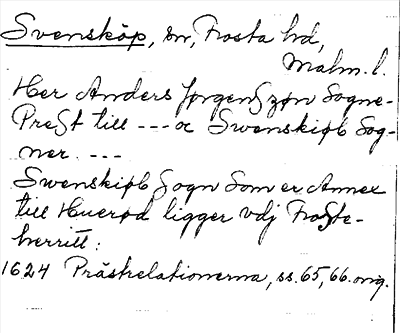 Svensköp, sn, Frosta hd,
Malm. l.
Her Anders JørgenSzøn Sogne-
PreSt till --- oc Swenskiøb Sog-
ner. ---
Swenskiøb Sogn Som er Annex
till Huerød ligger vdj FroSte-
herritt:
1624 Prästrelationerna, ss. 65, 66. orig.